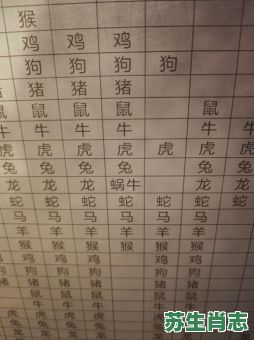 猴
鸡 鸡 鸡
狗 狗 狗 狗
猪 猪 猪
鼠 鼠 鼠 鼠
牛 牛 牛 牛 牛
虎 虎 虎 虎 虎 虎
兔 兔 兔 兔 兔
龙 龙 龙 蜗牛 龙 龙
蛇 蛇 蛇 蛇 蛇 蛇
马 马 马 马 马
羊 羊 羊 羊 羊
猴 猴 猴 猴 猴
鸡 鸡 鸡 鸡
狗 狗 狗 狗
猪 猪 猪 猪
鼠 鼠 鼠 鼠
牛 牛 牛 牛
虎 虎 虎
兔 兔 兔
龙 龙 龙
苏生肖志